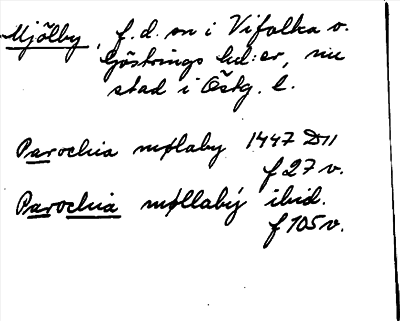 Mjölby, f.d. sn i Vifolka o.
Göstrings hd:er, nu
stad i Östg. l.
Parochia mølaby 1447 D11
f 27 v.
Parochia møllabÿ ibid.
f 105 v.